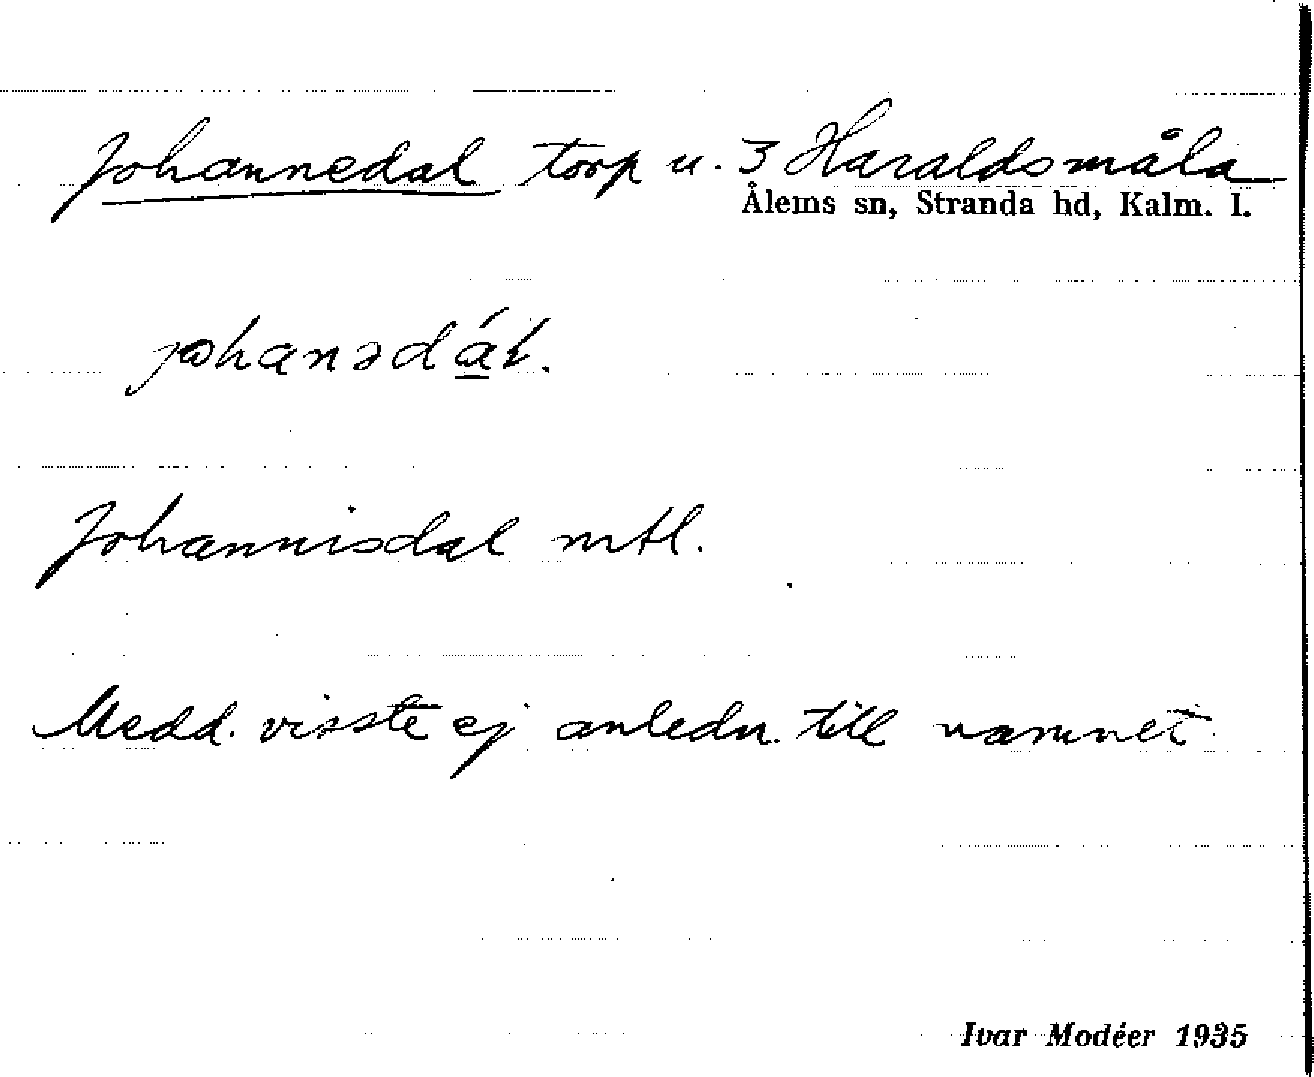 Johannedal torp u. 3 Haraldsmåla
Ålems sn, Stranda hd, Kalm. l.
johanədát.
Johannisdal mtl.
Medd. visste ej anledn. till namnet
Ivar Modéer 1935